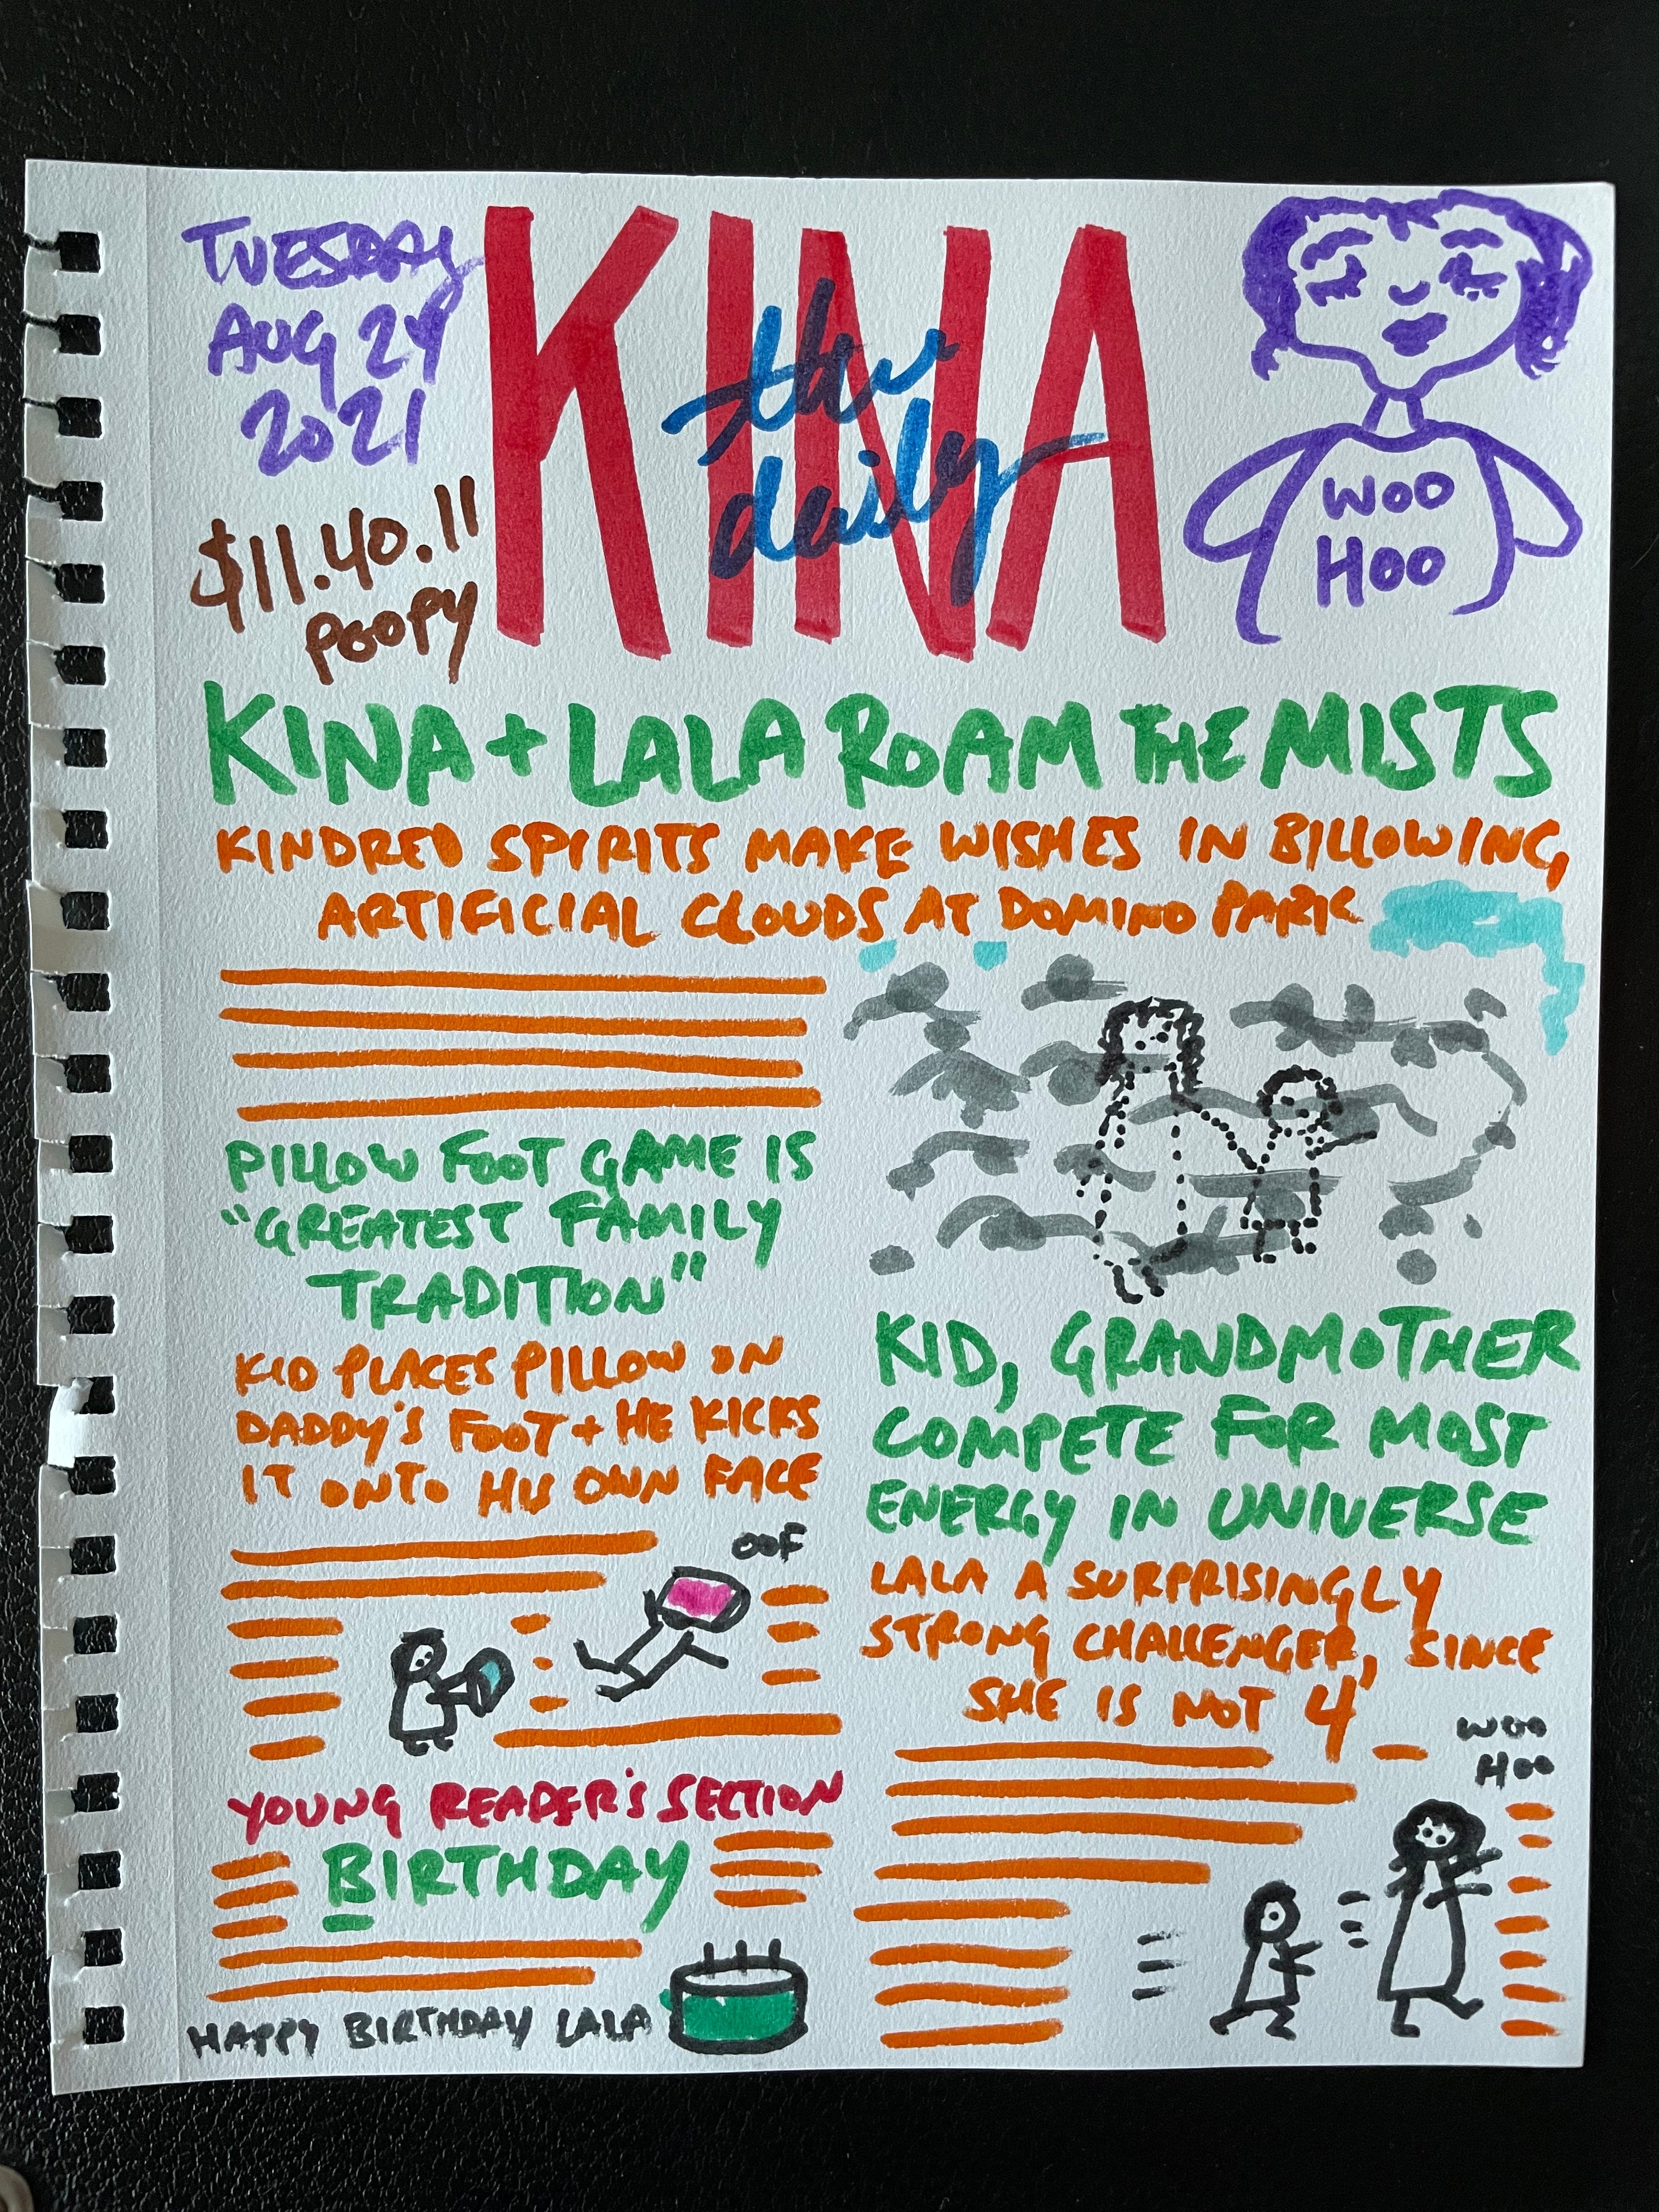 TUESDAY
AUG 24
2021
$11.40.11
POOPY
the
daily
KINA
WOO
HOO
KINA + LALA ROAM THE MISTS
KINDRED SPIRITS MAKE WISHES IN BILLOWING,
ARTIFICIAL CLOUDS AT DOMINO PARK
PILLOW FOOT GAME IS
"GREATEST FAMILY
TRADITION"
KID PLACES PILLOW ON
DADDY'S FOOT + HE KICKS
IT ONTO HIS OWN FACE
OOF
YOUNG READER'S SECTION
BIRTHDAY
HAPPY BIRTHDAY LALA
KID, GRANDMOTHER
COMPETE FOR MOST
ENERGY IN UNIVERSE
LALA A SURPRISINGLY
STRONG CHALLENGER, SINCE
SHE IS NOT 4
WOO
HOO